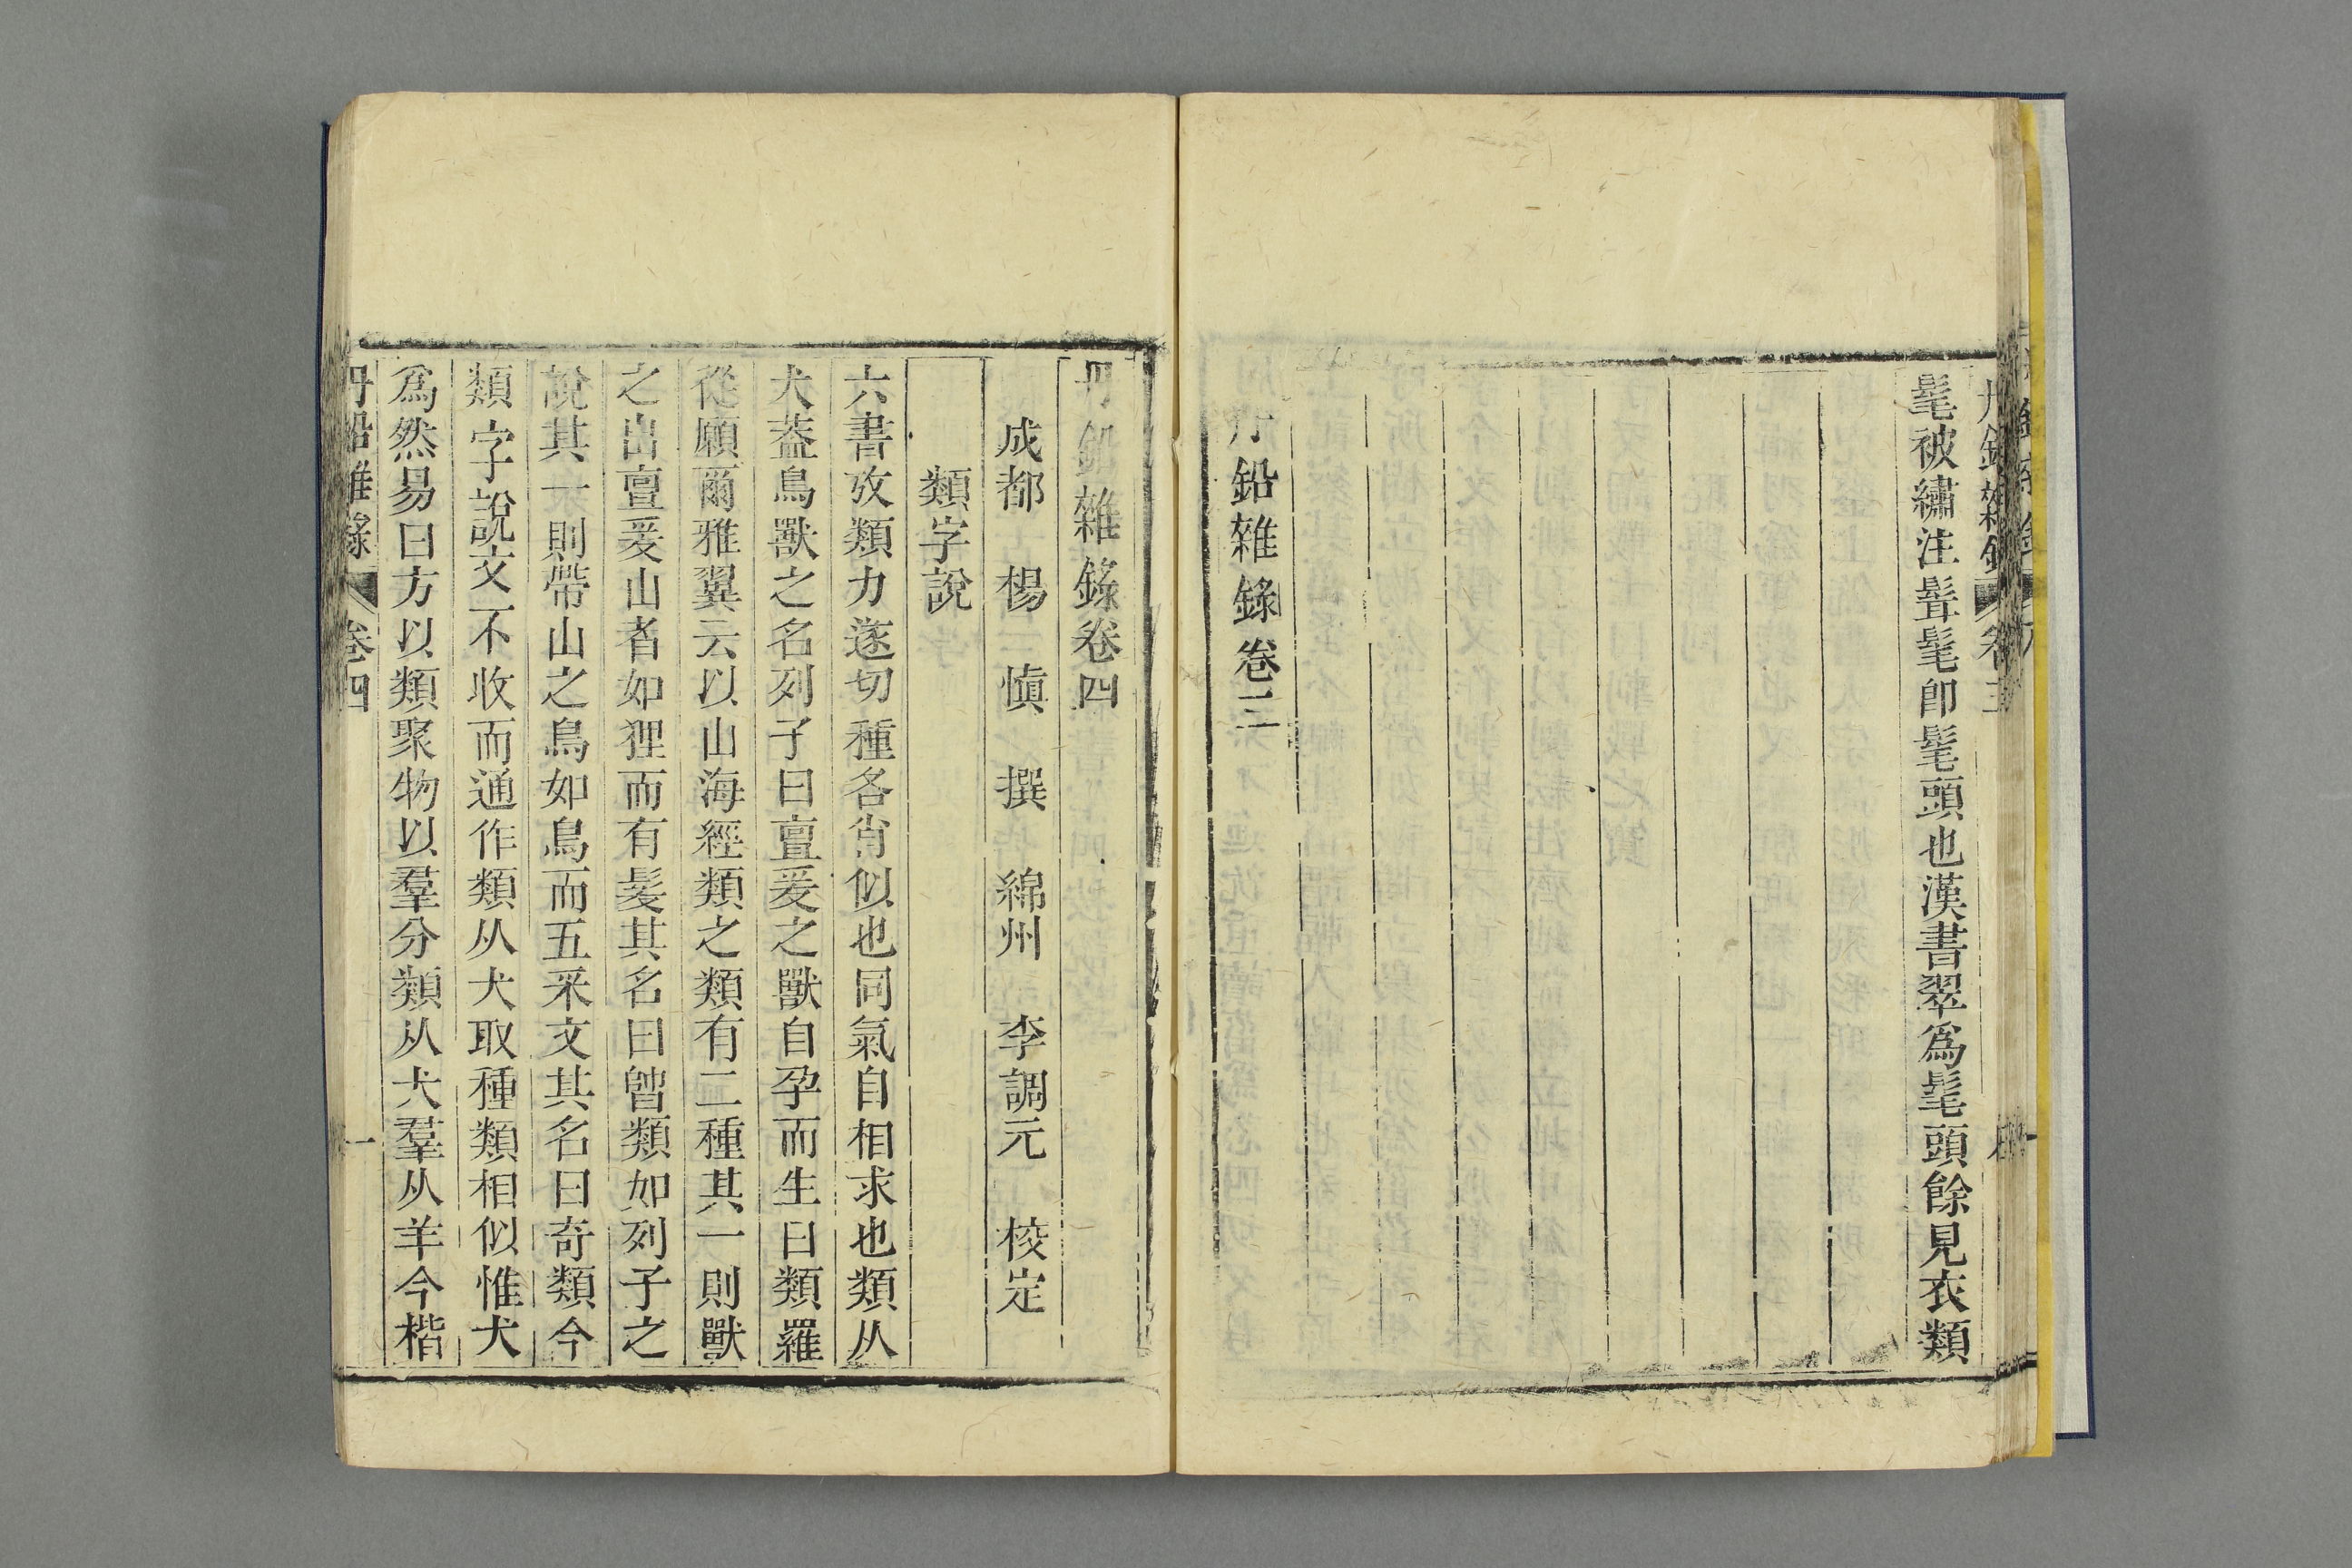 丹鉛雜錄 卷三
髦被繡注髶髦卽髦頭也漢書翠爲髦頭餘見衣類
丹鉛雜錄卷三
丹鉛雜錄卷四
成都 楊 愼 撰 綿州 李調元 校定
類字說
六書攷類力遂切種各肖似也同氣自相求也類从
犬葢鳥獸之名列子曰亶爰之獸自孕而生曰類羅
從願爾雅翼云以山海經類之類有二種其一則獸
之出亶爰山者如狸而有髮其名曰㫬類如列子之
說其一則帶山之鳥如鳥而五采文其名曰奇類今
類字說文不收而通作類从犬取種類相似惟犬
爲然易曰方以類聚物以羣分類从犬羣从羊今楷
丹鉛雜錄 卷四 一